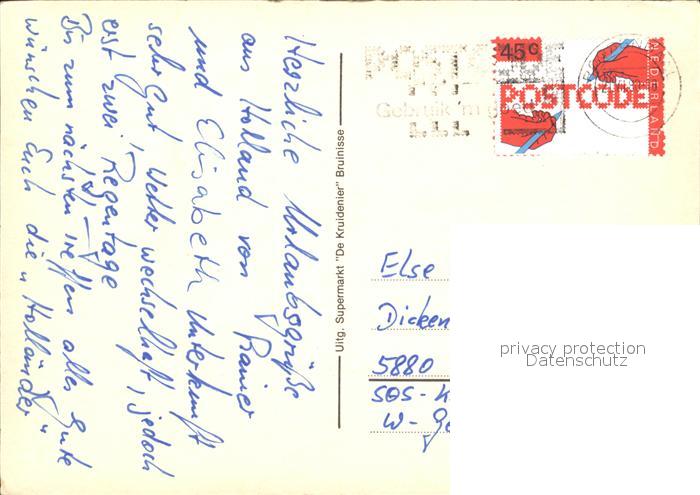 Herzliche Urlaubsgrüße
aus Holland von Rainer
und Elisabeth Unterkunft
sehr gut, Wetter wechselhaft, jedoch
erst zwei Regentage
Bis zum nächsten Treffen alles Gute
wünschen Euch die "Holländer"
Uitg. Supermarkt "De Kruidenier" Bruinisse
45c
NEDERLAND
POSTCODE
Gebruik 'm
Else
Dicken
5880
SOS-
W-
privacy protection
Datenschutz